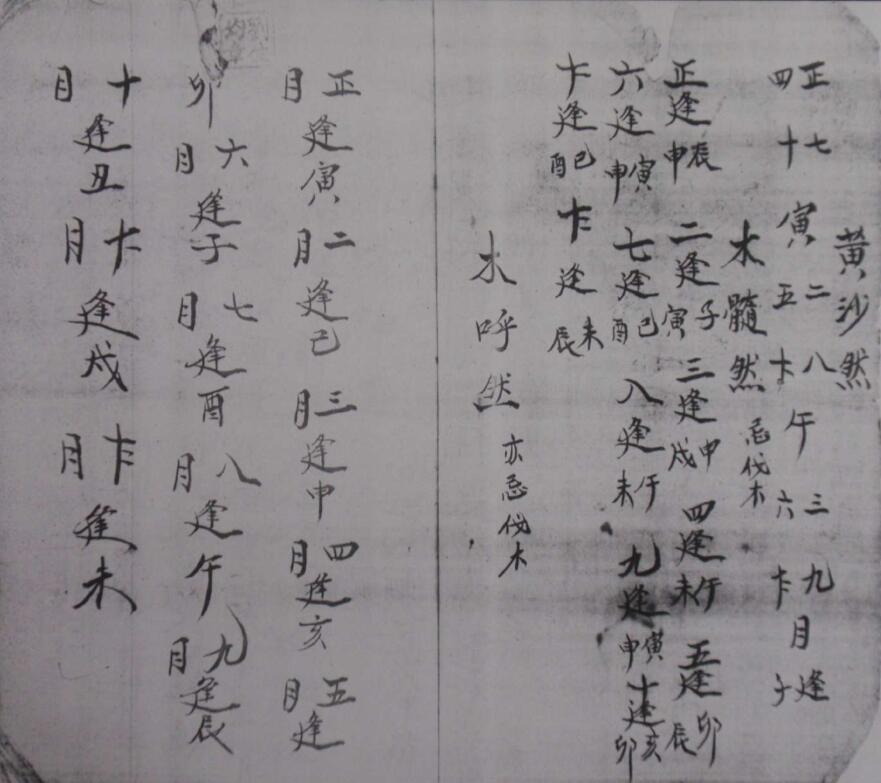 黄沙然
正七四十寅 二八五卞午 三九六卞月逢子
木髓然 忌伐木
正逢辰申 二逢子寅 三逢申戌 四逢午未 五逢卯辰
六逢寅申 七逢巳酉 八逢午未 九逢寅申 十逢亥卯
卞逢巳酉 卞逢未辰
木呼然 亦忌伐木
正月逢寅 二月逢巳 三月逢申 四月逢亥 五月逢
卯 六月逢子 七月逢酉 八月逢午 九月逢辰
十月逢丑 卞月逢戌 卞月逢未